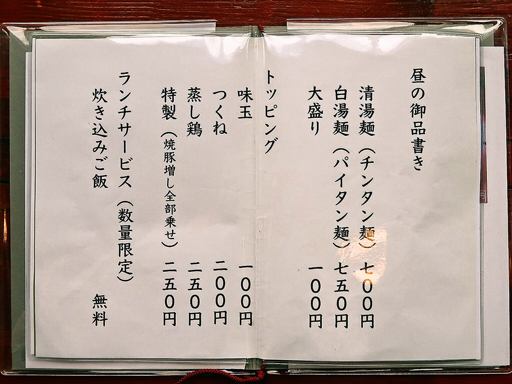 昼の御品書き
清湯麺（チンタン麺）七〇〇円
白湯麺（パイタン麺）七五〇円
大盛り 一〇〇円
トッピング
味玉 一〇〇円
つくね 二〇〇円
蒸し鶏 二五〇円
特製（焼豚増し全部乗せ）二五〇円
ランチサービス（数量限定）
炊き込みご飯 無料